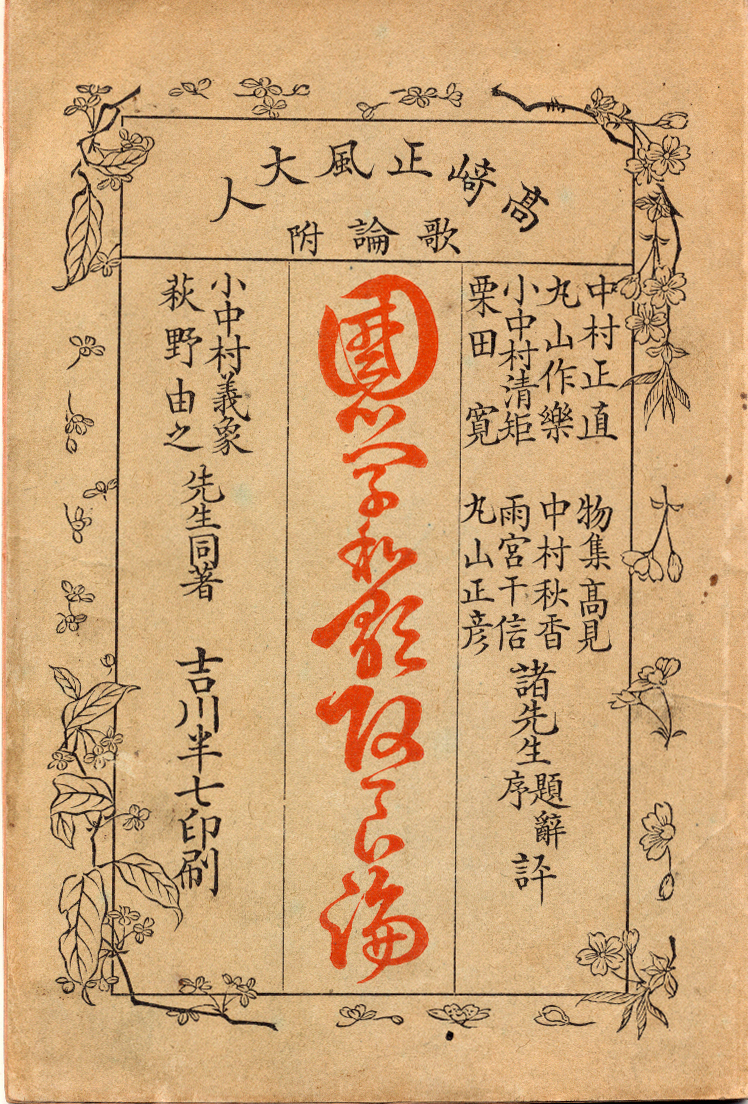 髙崎正風大人
歌論附
中村正直
丸山作樂
小中村清矩
栗田寛
物集髙見
中村秋香
雨宮千信
丸山正彦
諸先生
題辭
序
評
國学和歌改良論
小中村義象
萩野由之
先生同著
吉川半七印刷